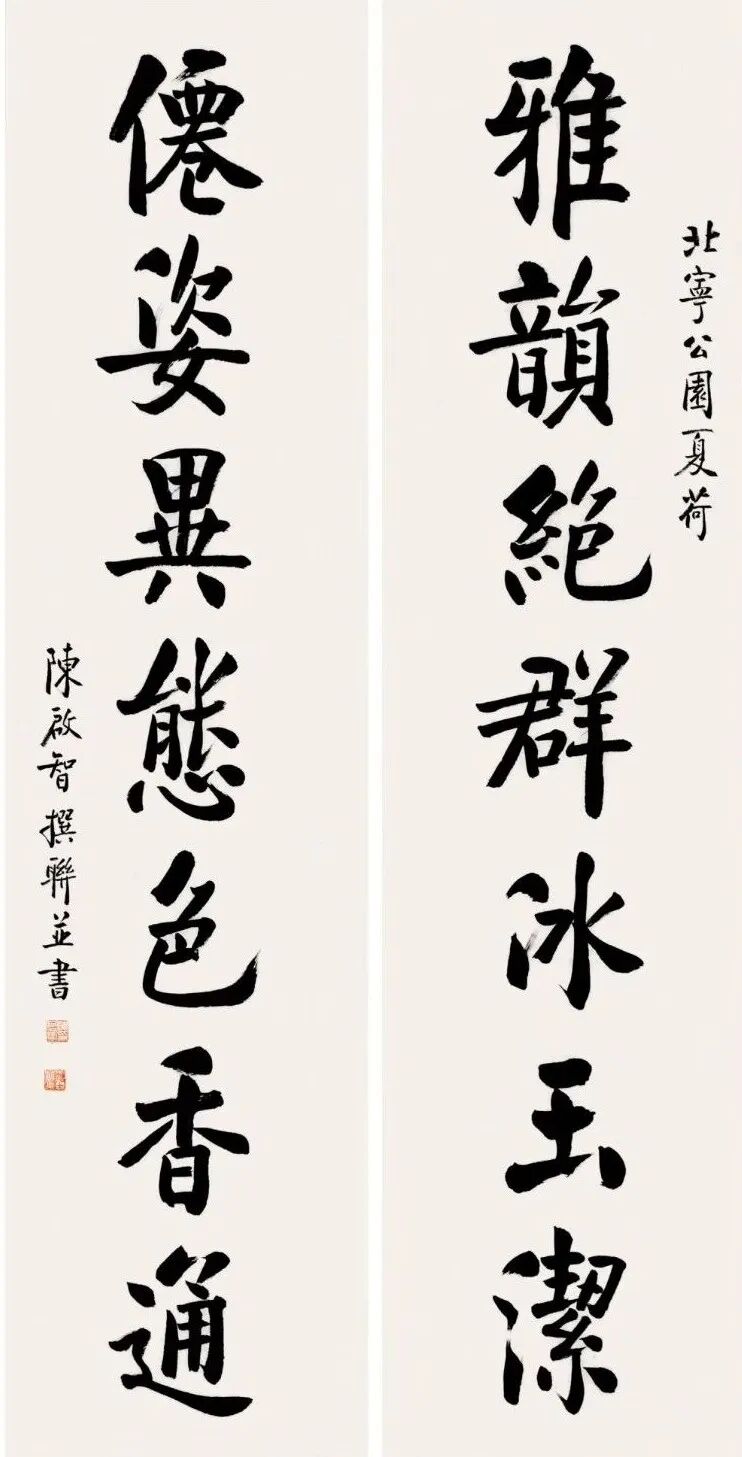 北寧公園夏荷
雅韻絕群冰玉潔
僊姿異態色香通
陳啟智撰聯並書